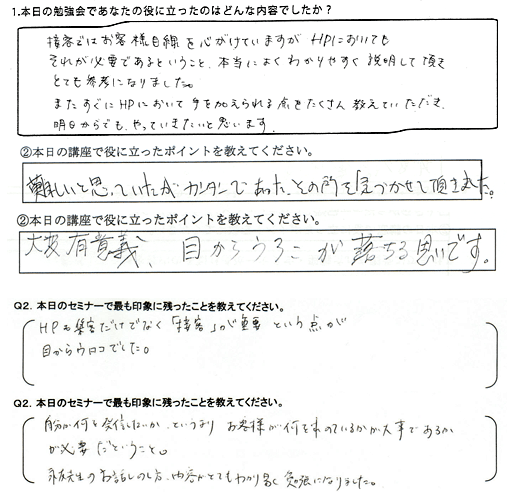 1.本日の勉強会であなたの役に立ったのはどんな内容でしたか？
接客ではお客様目線を心がけていますが HPにおいても
それが必要であるということ、本当によくわかりやすく説明して頂き
とても参考になりました。
またすぐにHPにおいて手を加えられる点をたくさん教えていただき、
明日からでも、やっていきたいと思います。
②本日の講座で役に立ったポイントを教えてください。
難しいと思っていたがカンタンであった、その所を気づかせて頂きました。
②本日の講座で役に立ったポイントを教えてください。
大変有意義、目からうろこが落ちる思いです。
Q2. 本日のセミナーで最も印象に残ったことを教えてください。
HPも集客だけでなく「接客」が重要という点が
目からウロコでした。
Q2. 本日のセミナーで最も印象に残ったことを教えてください。
自分が何を発信したいか、というより お客様が何を求めているかが大事であるか
が必要だということ。
先生のお話しのし方、内容がとてもわかり易く勉強になりました。